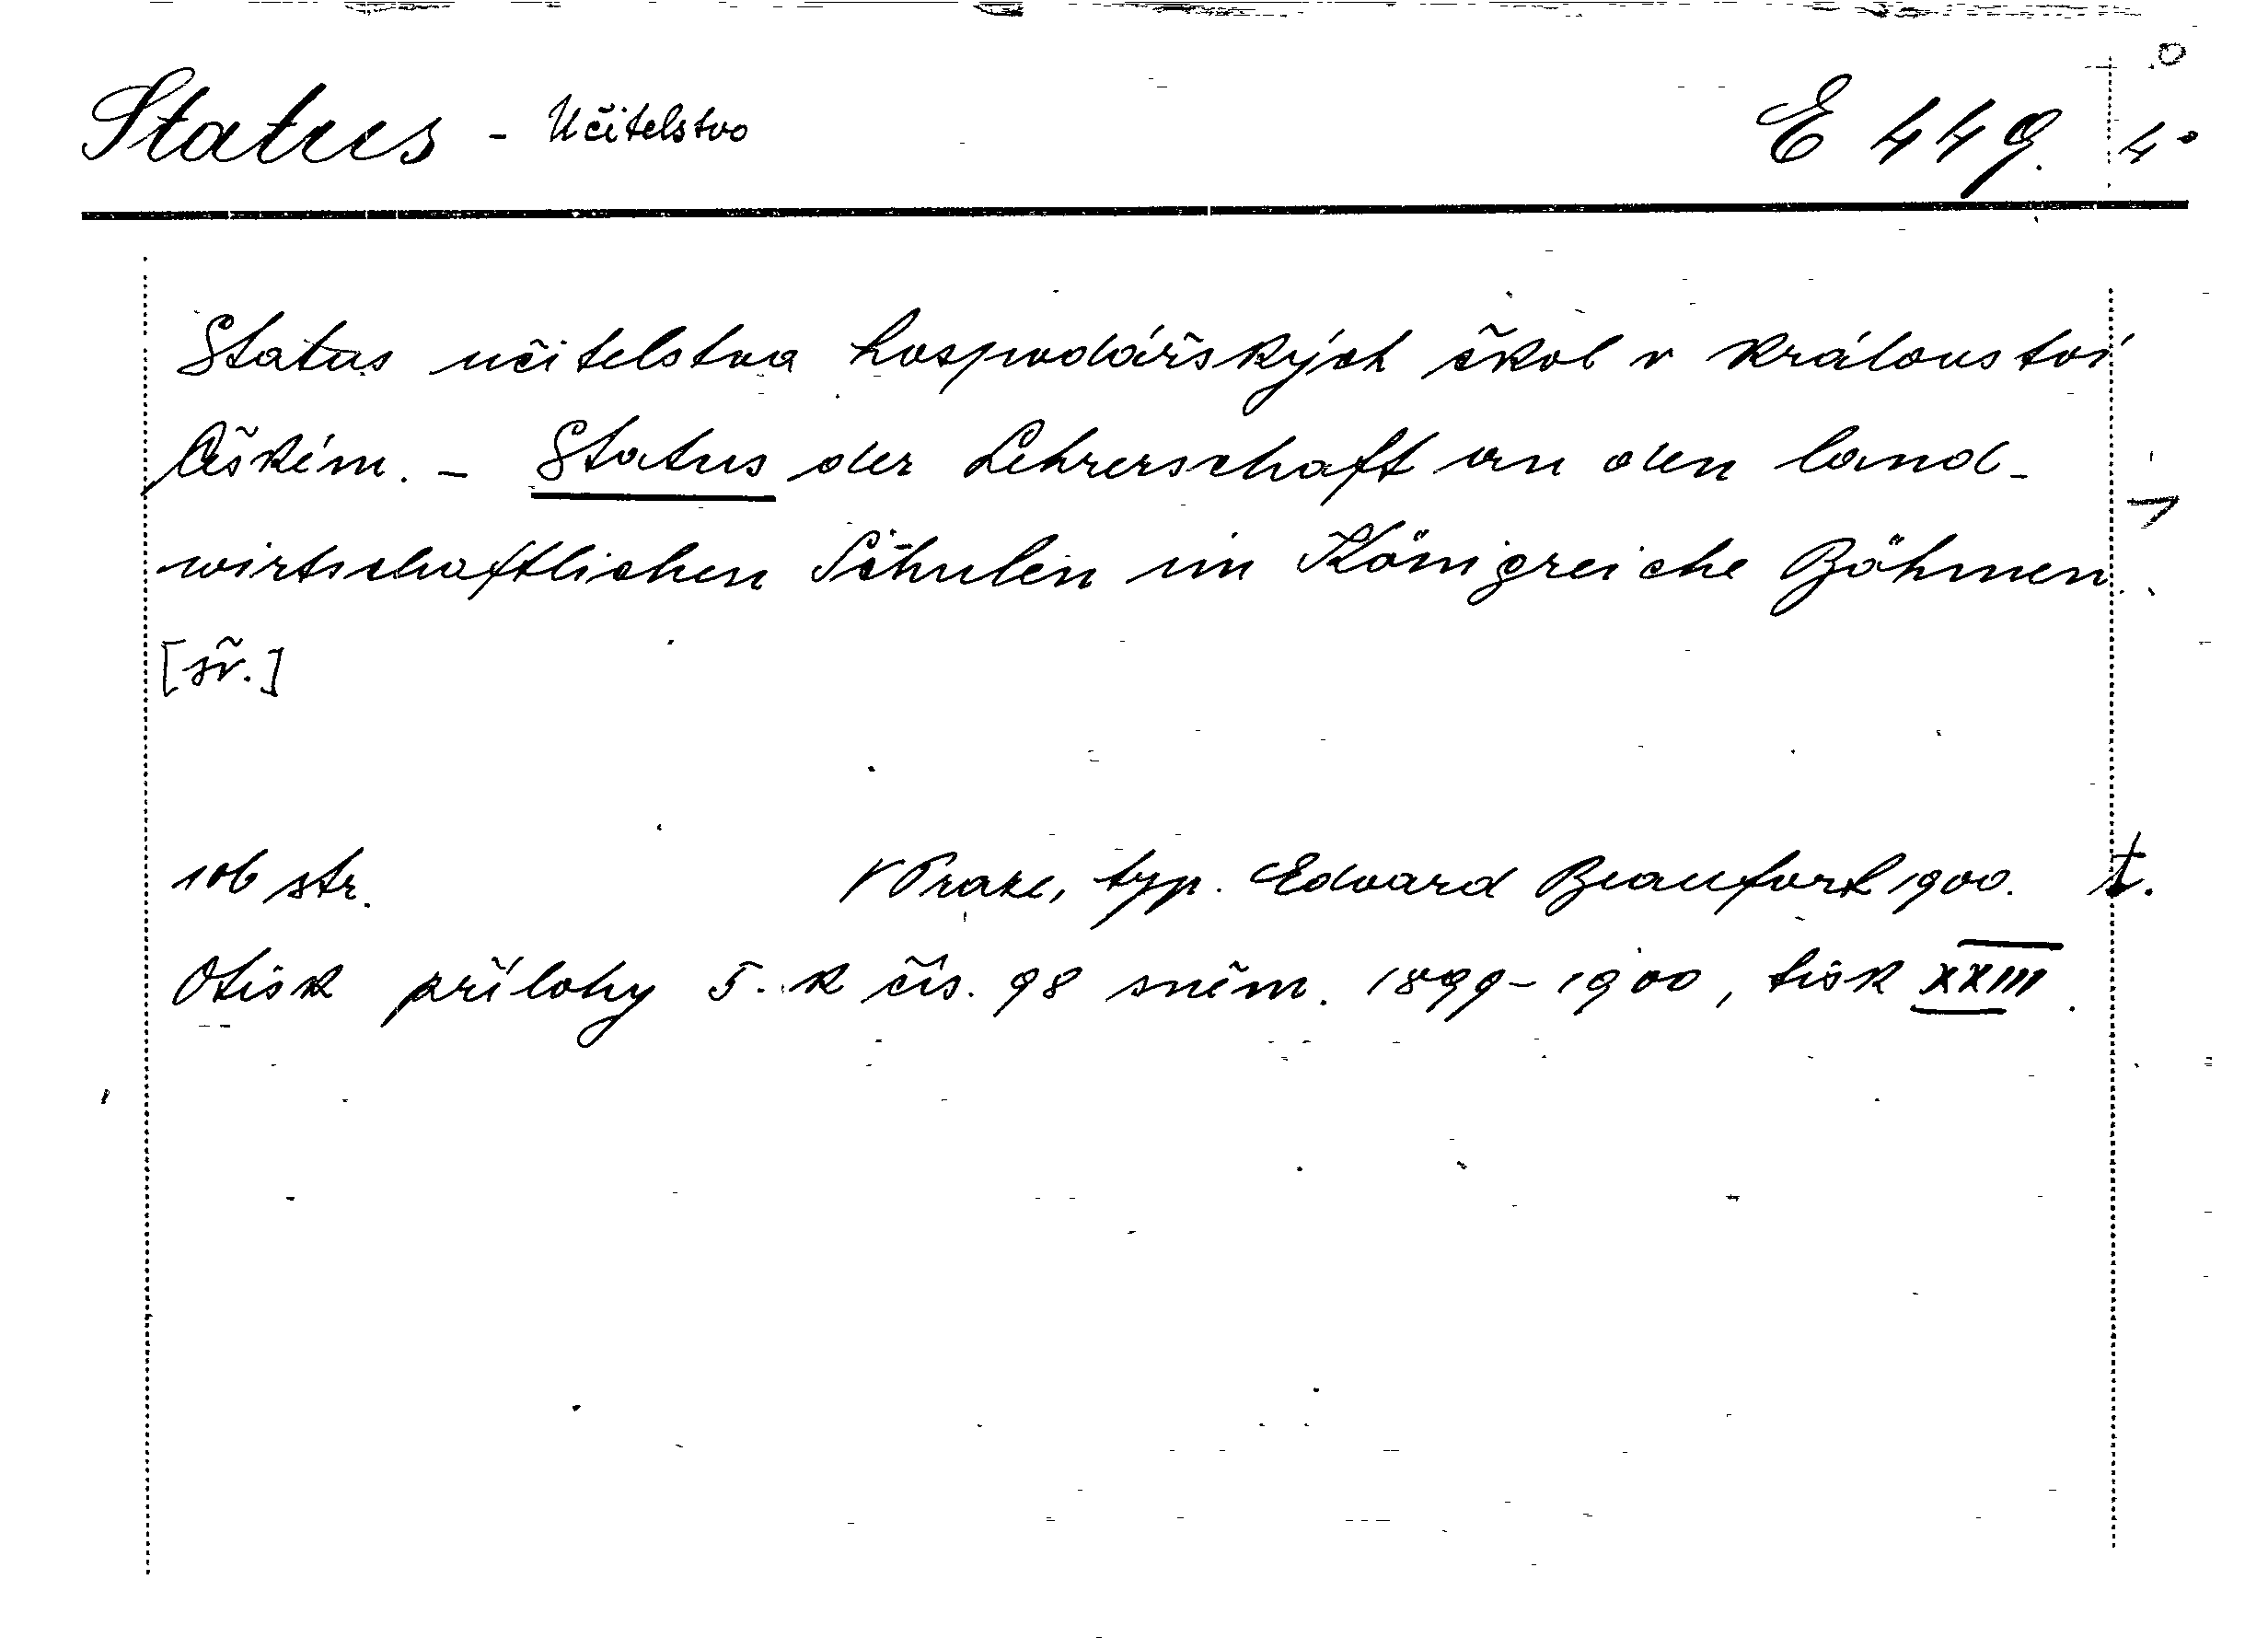 Status - Učitelstvo E 449. 4°
Status učitelstva hospodářských škol v Království
Českém. - Status der Lehrerschaft an den land-
wirtschaftlichen Schulen im Königreiche Böhmen.
[sř.]
106 str. V Praze, typ. Edvard Beaufort 1900. t.
Otisk přílohy 5. k čís. 98 sněm. 1899-1900, tisk XXIII.